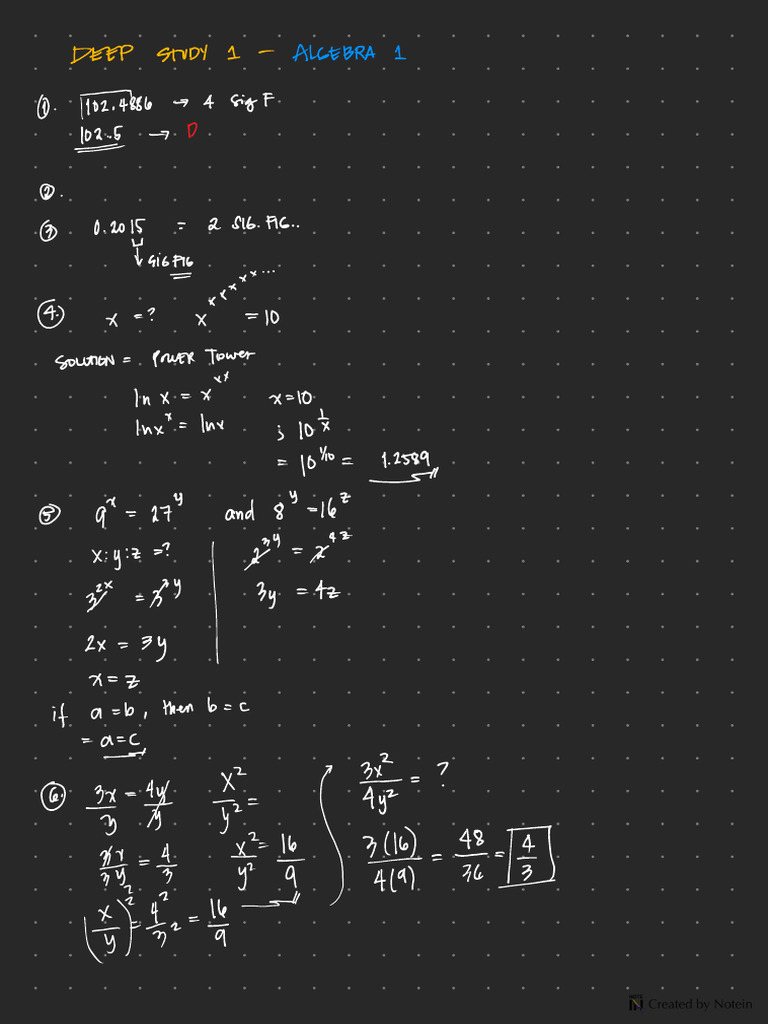 DEEP STUDY 1 - ALGEBRA 1
①. 102.4886 → 4 Sig F
102.5 → D
②.
③ 0.2015 = 2 SIG. FIG..
↓ SIG FIG
④. x = ? x^x^x^x^x^x^... = 10
SOLUTION = POWER TOWER
ln x = x^x^x
ln x^x = ln x
x = 10
; 10^(1/x)
= 10^(1/10) = 1.2589
⑤ 9^x = 27^y and 8^y = 16^z
x : y : z = ?
3^2x = 3^3y
2x = 3y
x = z
2^3y = 2^4z
3y = 4z
if a = b, then b = c
= a = c
⑥. 3x/3 = 4y/3
3x/3y = 4/3
(x/y)^2 = 4^2/3^2 = 16/9
x^2/y^2 =
x^2/y^2 = 16/9
3x^2/4y^2 = ?
3(16)/4(9) = 48/36 = 4/3
Created by Notein